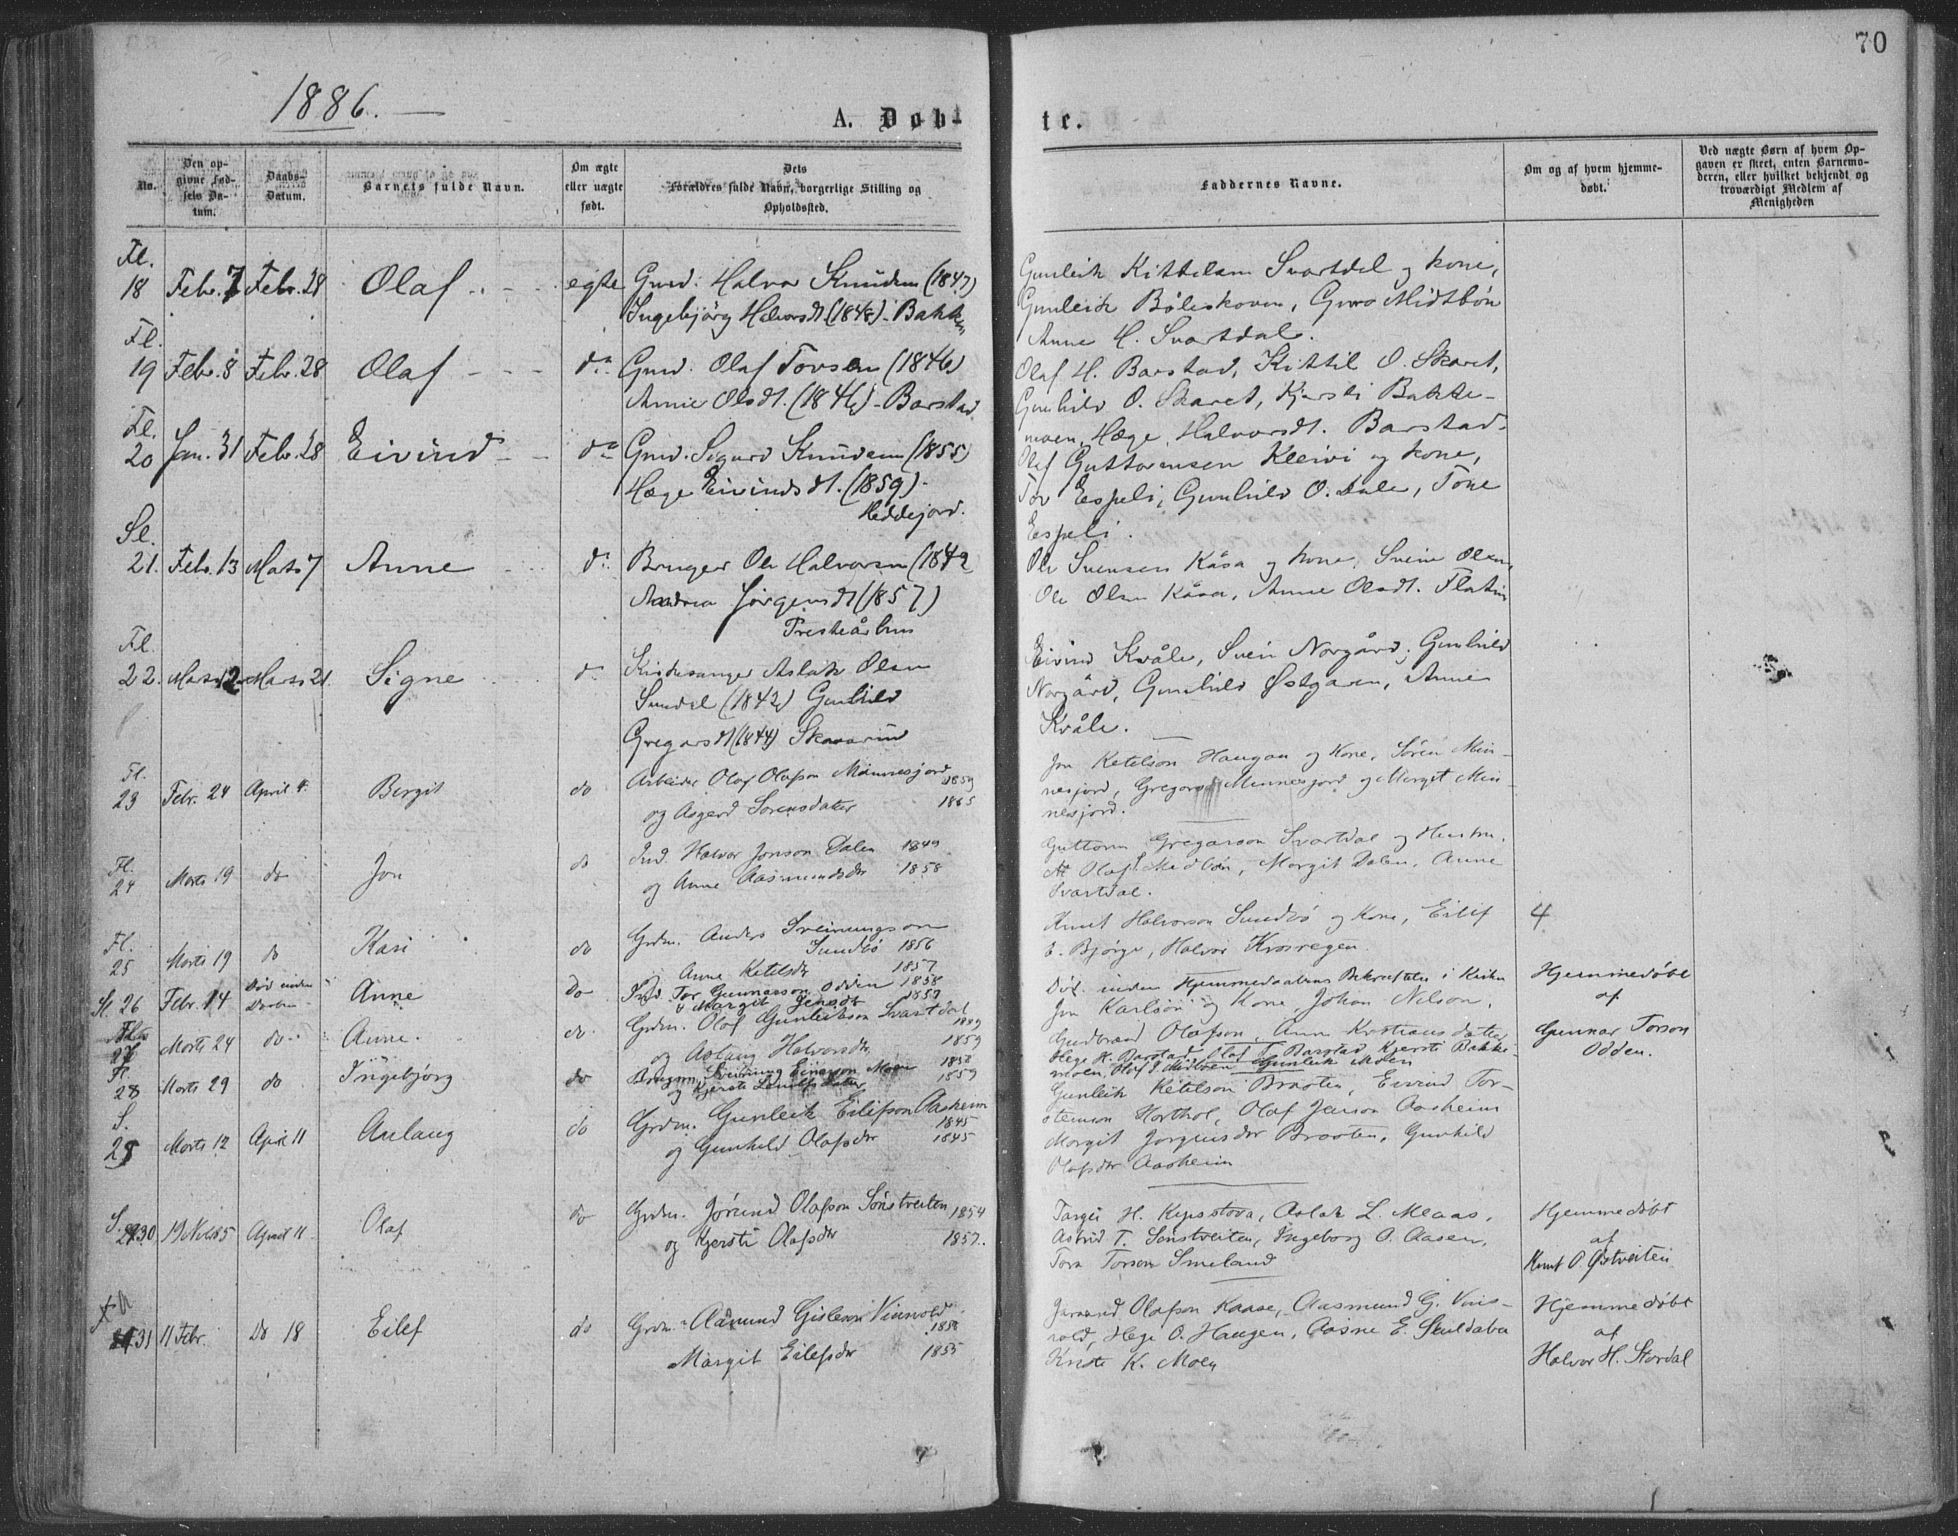 70
1886.
A. Døb-
te.
No.
Den op-
givne Fød-
sels Da-
tum.
Daabs-
Datum.
Barnets fulde Navn.
Om ægte
eller uægte
født.
Dets
Forældres fulde Navn, borgerlige Stilling og
Opholdssted.
Faddernes Navne.
Om og af hvem hjemme-
døbt.
Ved uægte Børn af hvem Op-
gaven er skeet, enten Barnemo-
deren, eller hvilket bekjendt og
troværdigt Medlem af
Menigheden
Fl.
18 Febr. 7 Febr. 28 Olaf egte Gmd: Halvor Knudsen (1847)
Ingebjörg Halvorsdt. (1848) - Bakken
Gunleik Kittelsen Svartdal og kone,
Gunleik Böleskoven, Guro Midtbön
Anne H. Svartdal.
Fl.
19 Febr. 8 Febr. 28 Olaf do Gmd: Olaf Tovsen (1846)
Anne Olsdt. (1846) - Barstad
Olaf H. Barstad, Kittil O. Skaret,
Gunhild O. Skaret, Kjersti Bakke-
moen, Hæge Halvorsdt. Barstad.
Fl.
20 Jan. 31 Febr. 28 Eivind do Gmd: Sigurd Knudsen (1855)
Hæge Eivindsdt. (1859) -
Heddejord.
Olaf Guttormsen Kleivi og kone,
Tov Espeli, Gunhild O. Dale, Tone
Espeli.
Sl.
21. Febr. 13 Marts 7 Anne do Bruger Ole Halvorsen (1842
Andrea Jörgensdt (1857)
Presteårhus
Ole Svensen Kåsa og kone, Svein Olsen,
Ole Olsen Kåsa, Anne Olsdt. Flatin
Fl.
22. Marts 12 Marts 21. Signe do Kirkesanger Aslak Olsen
Sundel (1842) Gunhild
Gregarsdt (1844) Skavarud
Eivind Kvåle, Svein Norgård, Gunhild
Norgård, Gunhild Østgaren, Anne
Kvåle.
Fl.
23 Febr. 24 April 4. Bergit do Arbeider Olaf Olafson Minnesjord 1859
og Asgerd Sorensdater 1865
Jon Ketelson Haugan og Kone, Sören Min-
nesjord, Gregors Minnesjord og Margit Min-
nesjord.
Fl.
24 Marts 19 do Jon do Ind. Halvor Jonson Dalen 1849
og Anne Aasmundsdr 1858
Guttorm Gregarson Svartdal og Hustru.
Olaf Midböen, Margit Dalen, Anne
Svartdal.
Fl.
25 Marts 19 do Kari do Grdm. Anders Sveinungson
Sundbö 1856
Anne Ketelsdr 1857
Knut Halvorson Sundbö og Kone, Eilif
E. Björge, Halvor Krosvegen
4
Sl. 26 Febr. 14 Död uden
Daaben Anne do Ind. Tor Gunnarson Odden 1858
& Margit Jensdr 1859
Död inden Hjemmedaabens Bekræftelse i Kirken
Jon Karlsön og Kone, Johan Nelson,
Gudbrand Olafson, Anne Kristiansdatter
Hjemmedøbt
af
Gunnar Torson
Odden.
Fl.
27 Marts 24 do Anne. do Grdm. Olaf Gunleikson Svartdal
og Aslaug Halvorsdr 1859
Hege H. Barstad, Olaf T. Barstad, Kjersti Bakke-
moen, Olaf J. Midböen, Gunleik Moen
Fl.
28 Marts 29 do Ingebjörg do Brugm. Sveinung Einarson Moen 1858
og Kjerste 1859
Gunleik Ketelson Braaten, Eivind Tor-
S.
29 Marts 12 April 11 Aslaug do Grdm. Gunleik Eilifson Aasheim 1845
og Gunhild Olafsdr 1845
stenson Horthol, Olaf Janson Aasheim
Margit Jorgensdr Braaten, Gunhild
Olafsdr Aasheim
S.
30 19 Nv 85 April 11 Olaf do Grdm. Jörund Olafson Sönstveiten 1854
og Kjersti Olafsdr 1857.
Targei H. Kipsstova, Aslak L. Maas,
Astrid T. Sönstveiten, Ingeborg O. Aasen,
Tora Torson Smeland
Hjemmedøbt
af
Knut O. Østveiten
31 11 Febr. Do 18 Eilef do Grdm. Aamund Gisleson Vinsvold
1856
Margit Eilefsdr 1855
Olafson Kaase, Aasmund G. Vins-
vold, Hege O. Haugen, Aasne E. Skuldabu
Kriste K. Moen
Hjemmedøbt
af
Halvor H. Stordal